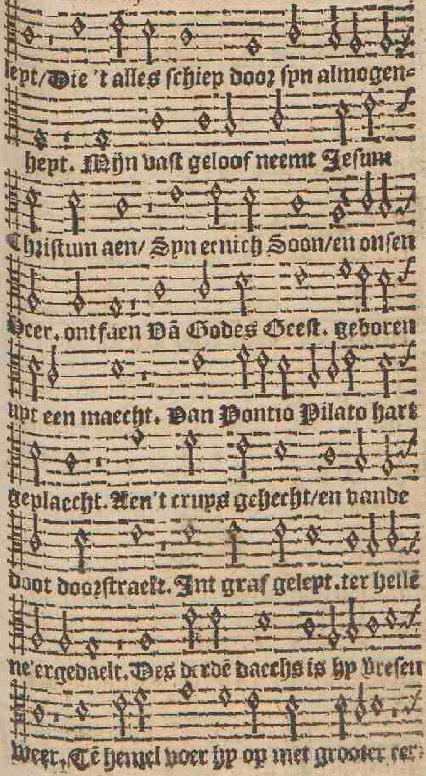 lept/Die 't alles schiep door syn almogen=
heyt. Mijn vast geloof neemt Jesum
Christum aen/ Syn eenich Soon/en onsen
Heer. ontfaen Vā Godes Geest. geboren
uyt een maecht. Van Pontio Pilato hart
geplaecht. Aen't cruys gehecht/en vande
doot doorstraelt. Int graf geleyt.ter hellē
ne'ergedaelt. Des derdē daechs is hy vresen
weer. Tē hemel voer hy op met grooter eer: